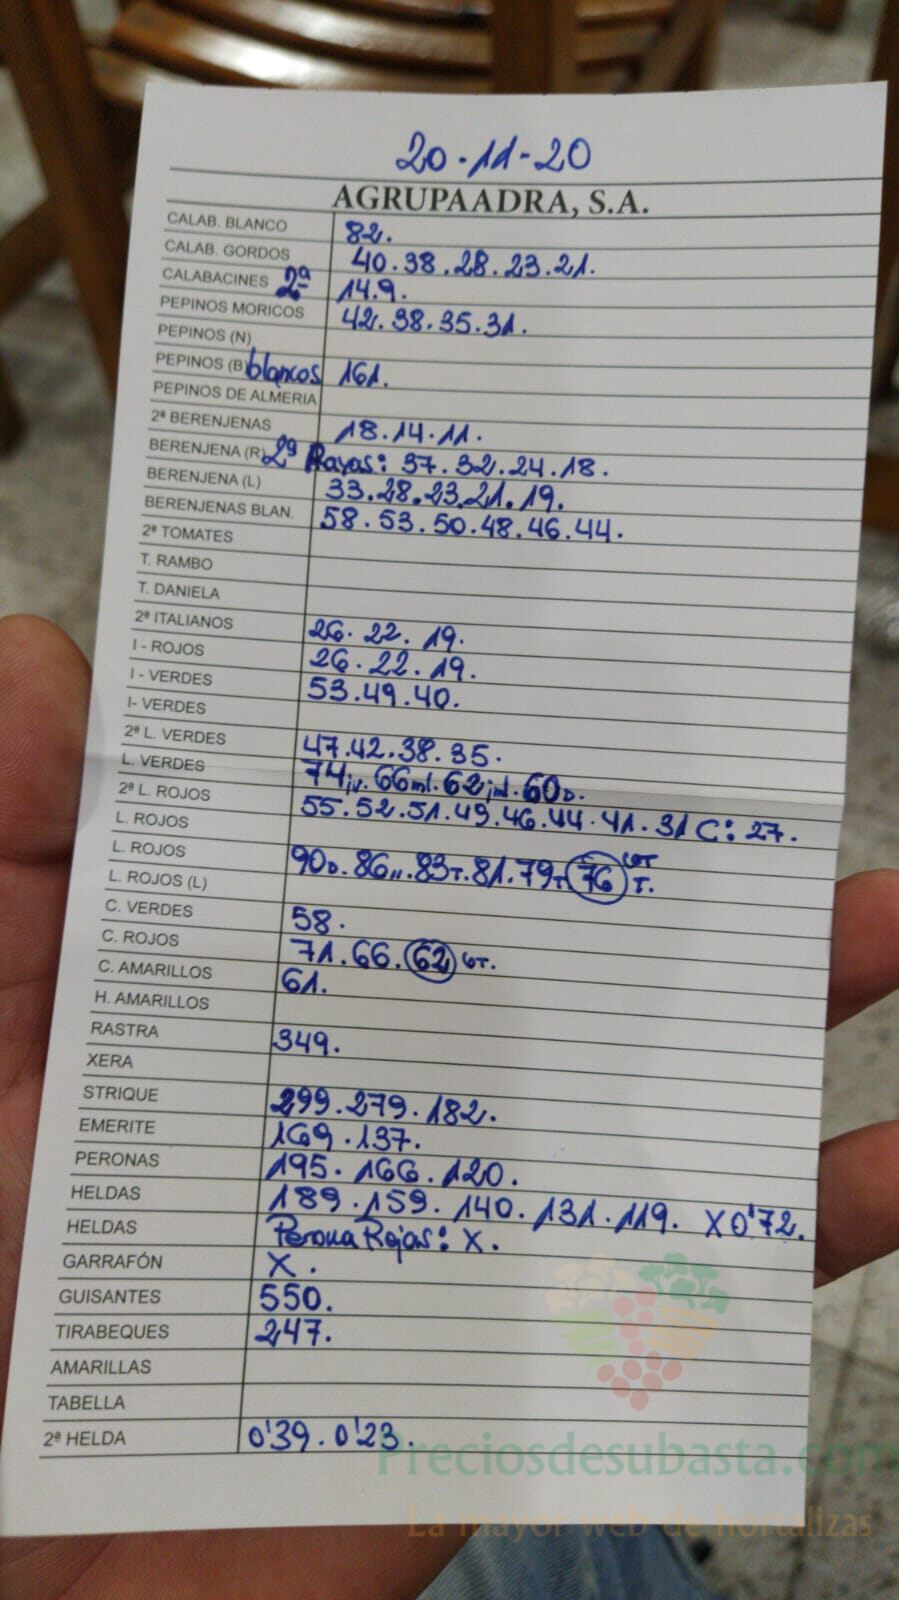 20-11-20
AGRUPAADRA, S.A.
CALAB. BLANCO 82.
CALAB. GORDOS 40.38.28.23.21.
CALABACINES 2ª 14.9.
PEPINOS MORICOS 42.38.35.31.
PEPINOS (N)
PEPINOS (B) blancos 161.
PEPINOS DE ALMERIA
2ª BERENJENAS 18.14.11.
BERENJENA (R) 2ª Rayas: 37.32.24.18.
BERENJENA (L) 33.28.23.21.19.
BERENJENAS BLAN. 58.53.50.48.46.44.
2ª TOMATES
T. RAMBO
T. DANIELA
2ª ITALIANOS 26.22.19.
I - ROJOS 26.22.19.
I - VERDES 53.49.40.
I- VERDES
2ª L. VERDES 47.42.38.35.
L. VERDES 74 66 62 60
2ª L. ROJOS 55.52.51.49.46.44.41.31 C: 27.
L. ROJOS
L. ROJOS 90D.86 83T.81.79T 76 T.
L. ROJOS (L)
C. VERDES 58.
C. ROJOS 71.66.62
C. AMARILLOS 61.
H. AMARILLOS
RASTRA 349.
XERA
STRIQUE 299.279.182.
EMERITE 169.137.
PERONAS 195.166.120.
HELDAS 189.159.140.131.119. X0'72.
HELDAS Perona Rojas: X.
GARRAFÓN X.
GUISANTES 550.
TIRABEQUES 247.
AMARILLAS
TABELLA
2ª HELDA 0'39.0'23.
Preciosdesubasta.com
La mayor web de hortalizas